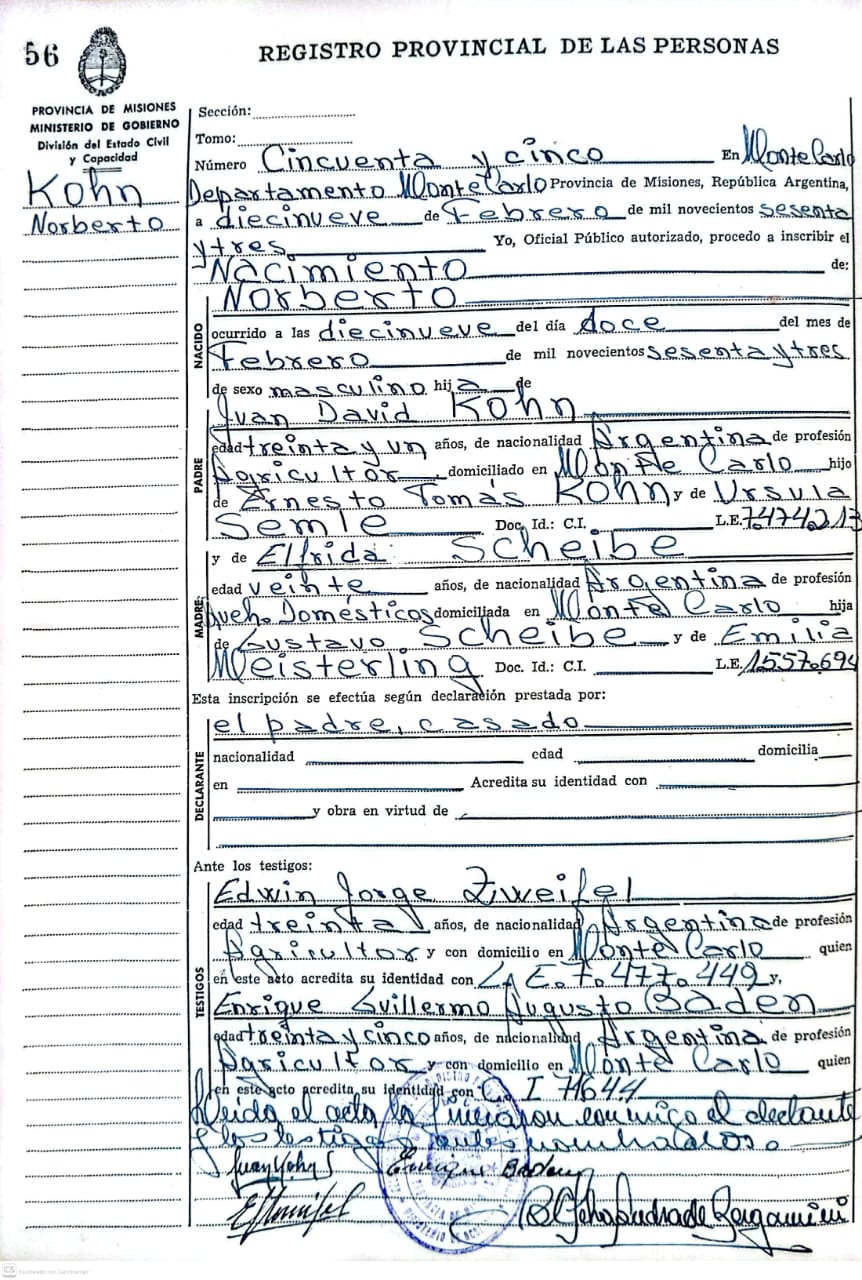 56
REGISTRO PROVINCIAL DE LAS PERSONAS
PROVINCIA DE MISIONES
MINISTERIO DE GOBIERNO
División del Estado Civil
y Capacidad
Kohn
Norberto
Sección:
Tomo:
Número Cincuenta y cinco En Monte Carlo
Departamento Monte Carlo Provincia de Misiones, República Argentina,
a diecinueve de Febrero de mil novecientos sesenta
y tres Yo, Oficial Público autorizado, procedo a inscribir el
Nacimiento de:
Norberto
NACIDO
ocurrido a las diecinueve del día doce del mes de
Febrero de mil novecientos sesenta y tres
de sexo masculino hija de
Juan David Kohn
PADRE
edad treinta y un años, de nacionalidad Argentina de profesión
Agricultor domiciliado en Monte Carlo hijo
de Ernesto Tomás Kohn y de Ursula
Semle Doc. Id.: C.I. L.E. 7474213
y de Elfrida Scheibe
MADRE
edad veinte años, de nacionalidad Argentina de profesión
Queh. Domésticos domiciliada en Monte Carlo hija
de Gustavo Scheibe y de Emilia
Meisterling Doc. Id.: C.I. L.E. 1.557.694
Esta inscripción se efectúa según declaración prestada por:
el padre, casado
DECLARANTE
nacionalidad edad domicilia
en Acredita su identidad con
y obra en virtud de
Ante los testigos:
TESTIGOS
Edwin Jorge Zweifel
edad treinta años, de nacionalidad Argentina de profesión
Agricultor y con domicilio en Monte Carlo quien
en este acto acredita su identidad con L. E. 7.477.449 y,
Enrique Guillermo Augusto Baden
edad treinta y cinco años, de nacionalidad Argentina de profesión
Agricultor y con domicilio en Monte Carlo quien
en este acto acredita su identidad con C. I 71644
Leida el acta la firmaron conmigo el declante
y los testigos antes nombrados.
Enrique Baden
CS